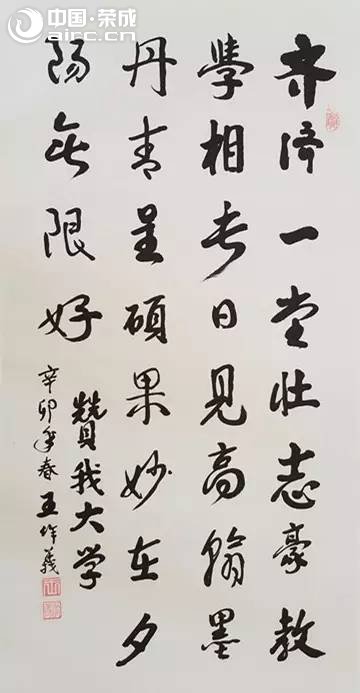 中国·荣成
airc.cn
齐济一堂壮志豪教
學相长日見高翰墨
丹青呈硕果妙在夕
陽無限好
贊我大学
辛卯年春王作義